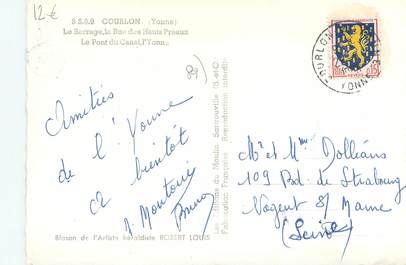 12 €
8.8.9 COURLON (Yonne)
Le Barrage, la Rue des Hauts Préaux
Le Pont du Canal, l'Yonne
89
Amitiés
de l'Yonne
à bientôt
Blason de l'Artiste héraldiste ROBERT LOUIS
Les Editions du Moulin, Sartrouville (S-et-O)
Fabrication Française Reproduction interdite
COURLON
YONNE
0,15
Mr et Mme Dolléans
109 Bd. de Strasbourg
Nogent s/ Marne
(Seine)